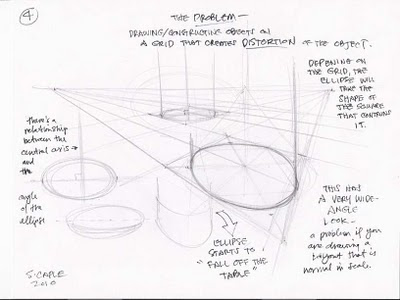 4
THE PROBLEM —
DRAWING/CONSTRUCTING OBJECTS ON
A GRID THAT CREATES DISTORTION OF THE OBJECT.
DEPENING ON
THE GRID, THE
ELLIPSE WILL
TAKE THE
SHAPE OF
THE SQUARE
THAT CONTAINS
IT.
there's a
relationship
between the
central axis
and
the
angle
of the
ellipse
THIS HAS
A VERY WIDE-
ANGLE
LOOK —
a problem if you
are drawing a
layout that is
normal in scale.
ELLIPSE
STARTS TO
"FALL OFF THE
TABLE"
S. CAPLE
2010